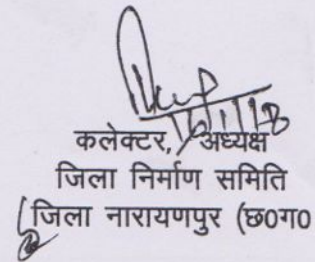 कलेक्टर, अध्यक्ष
जिला निर्माण समिति
जिला नारायणपुर (छ0ग0